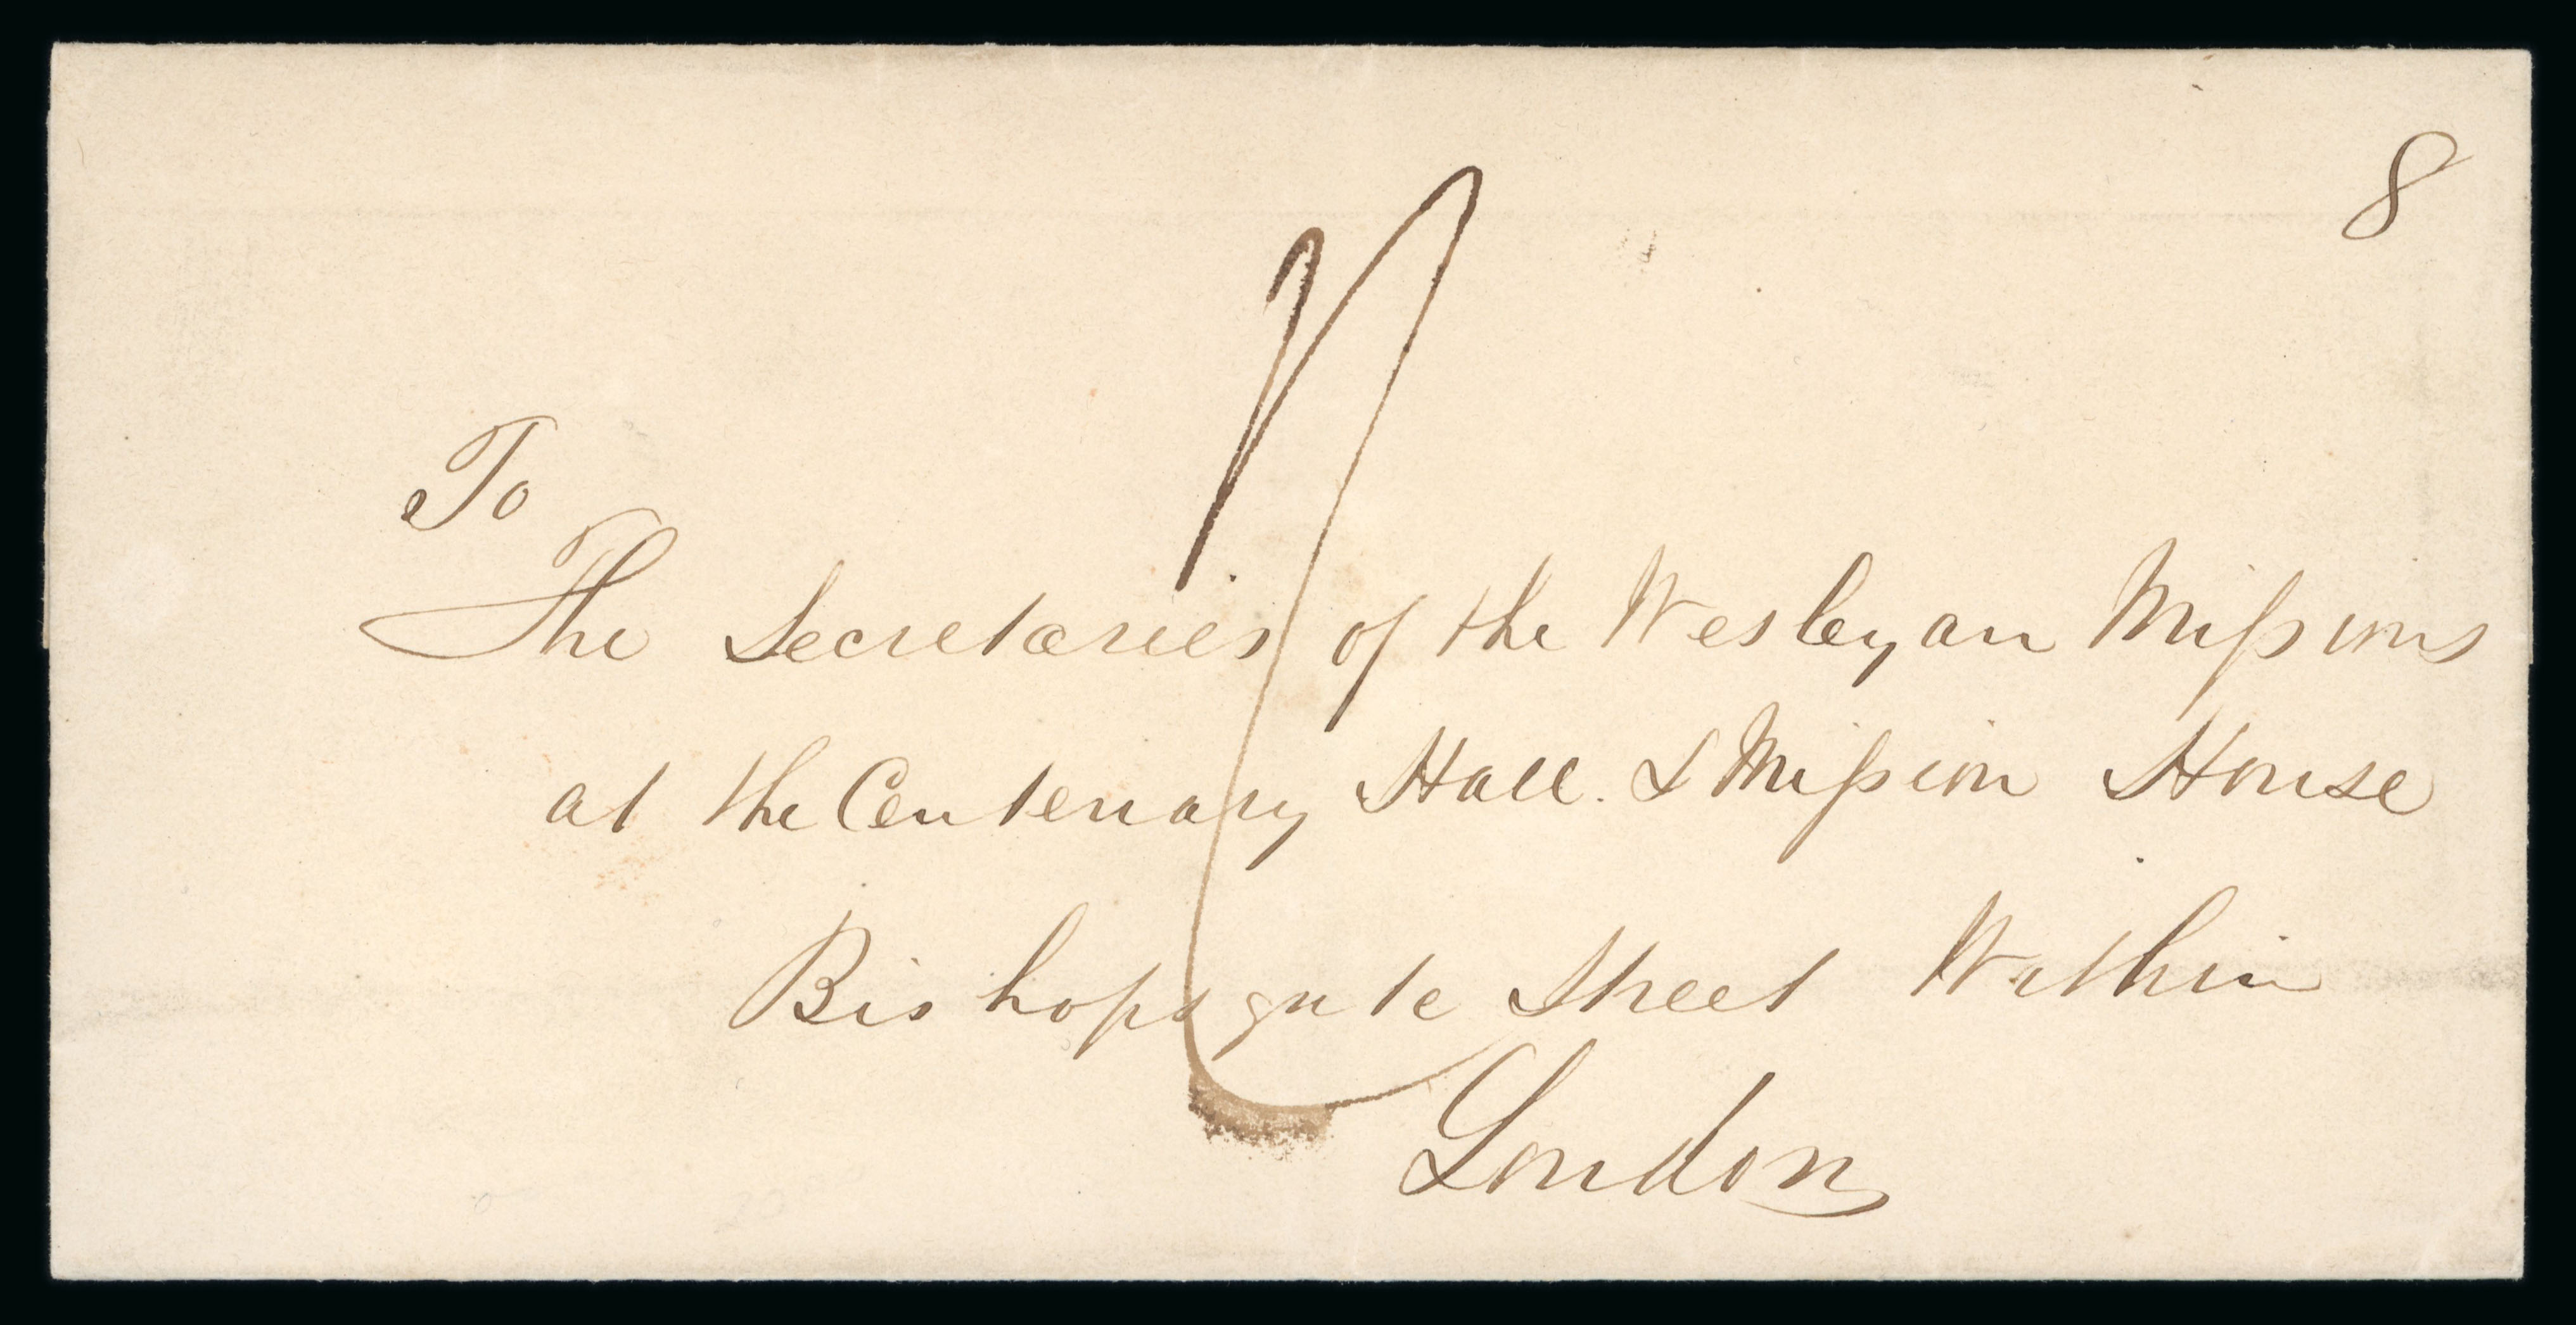 8
To
The Secretaries of the Wesleyan Miſsions
at the Centenary Hall. & Miſsion House
Bishopsgate Street Within
London